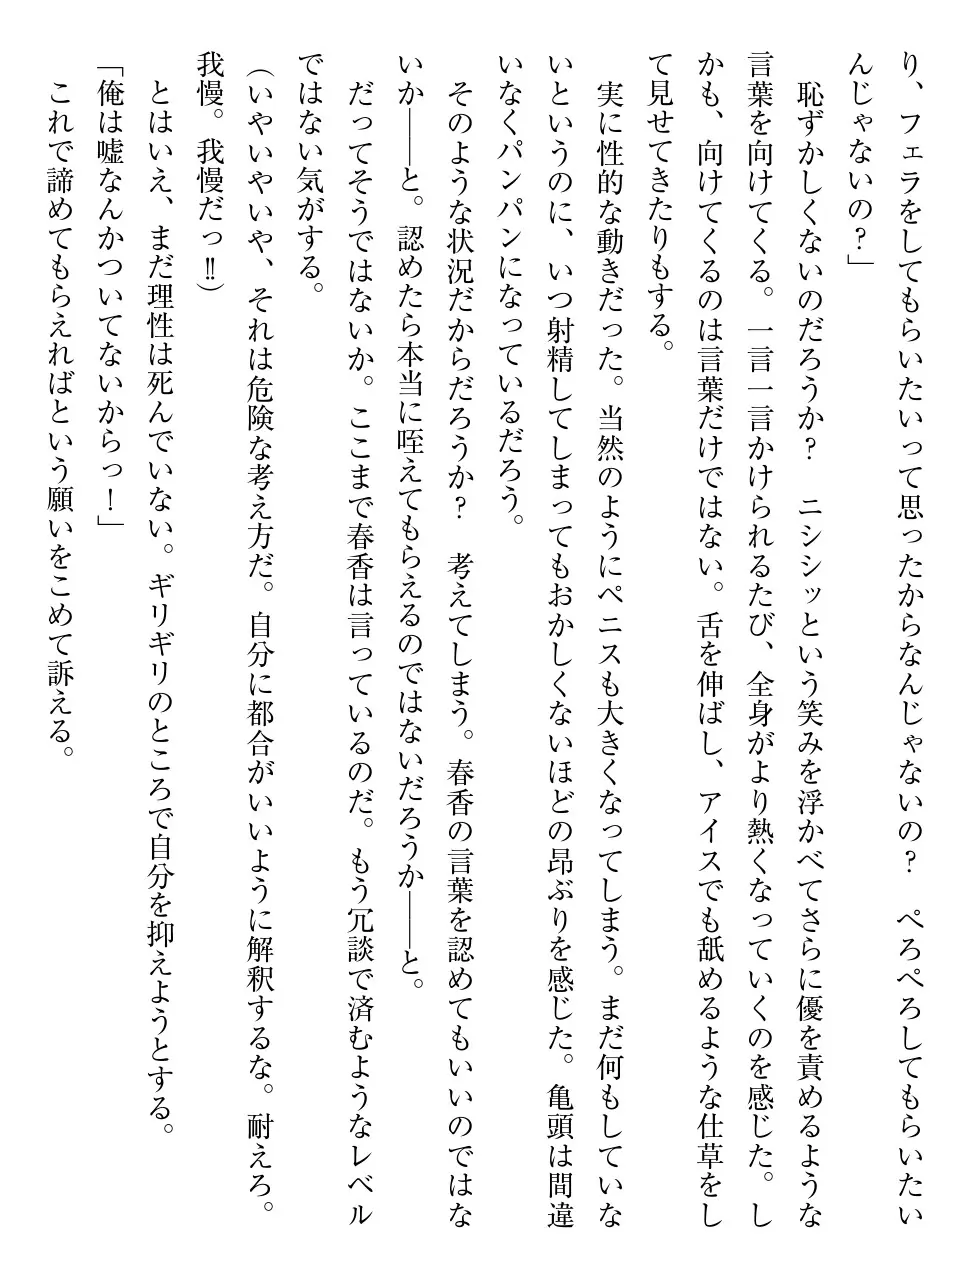 り、フェラをしてもらいたいって思ったからなんじゃないの？　ぺろぺろしてもらいたい
んじゃないの？」
　恥ずかしくないのだろうか？　ニシシッという笑みを浮かべてさらに優を責めるような
言葉を向けてくる。一言一言かけられるたび、全身がより熱くなっていくのを感じた。し
かも、向けてくるのは言葉だけではない。舌を伸ばし、アイスでも舐めるような仕草をし
て見せてきたりもする。
　実に性的な動きだった。当然のようにペニスも大きくなってしまう。まだ何もしていな
いというのに、いつ射精してしまってもおかしくないほどの昂ぶりを感じた。亀頭は間違
いなくパンパンになっているだろう。
　そのような状況だからだろうか？　考えてしまう。春香の言葉を認めてもいいのではな
いか――と。認めたら本当に咥えてもらえるのではないだろうか――と。
　だってそうではないか。ここまで春香は言っているのだ。もう冗談で済むようなレベル
ではない気がする。
（いやいやいや、それは危険な考え方だ。自分に都合がいいように解釈するな。耐えろ。
我慢。我慢だっ‼）
　とはいえ、まだ理性は死んでいない。ギリギリのところで自分を抑えようとする。
「俺は嘘なんかついてないからっ！」
　これで諦めてもらえればという願いをこめて訴える。